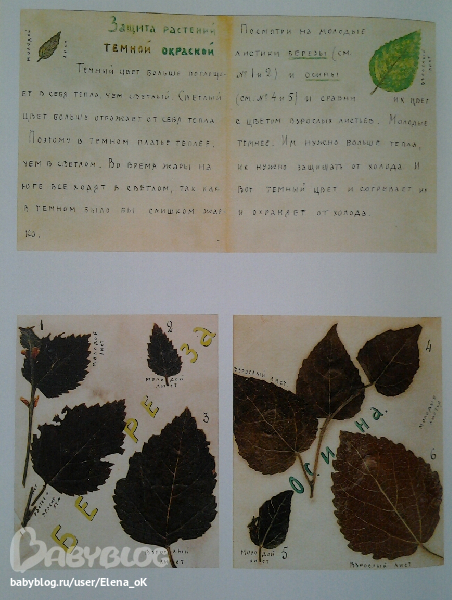 Защита растений
темной окраской
молодой лист
Темный цвет больше поглоща-
ет в себя тепла, чем светлый. Светлый
цвет больше отражает от себя тепла.
Поэтому в темном платье теплее,
чем в светлом. Во время жары на
юге все ходят в светлом, так как
в темном было бы слишком жар-
ко.
Посмотри на молодые
листики березы (см.
№1 и 2) и осины
(см. №4 и 5) и сравни их цвет
взрослый лист
с цветом взрослых листьев. Молодые
темнее. Им нужно больше тепла,
их нужно защищать от холода. И
вот темный цвет и согревает их
и охраняет от холода.
1
молодой лист
2
молодой
лист
3
взрослый
лист
БЕРЕЗА
взрослый лист
4
молодые листья
Осина.
молодой
лист
5
6
взрослый лист
BABYBLOG
babyblog.ru/user/Elena_oK